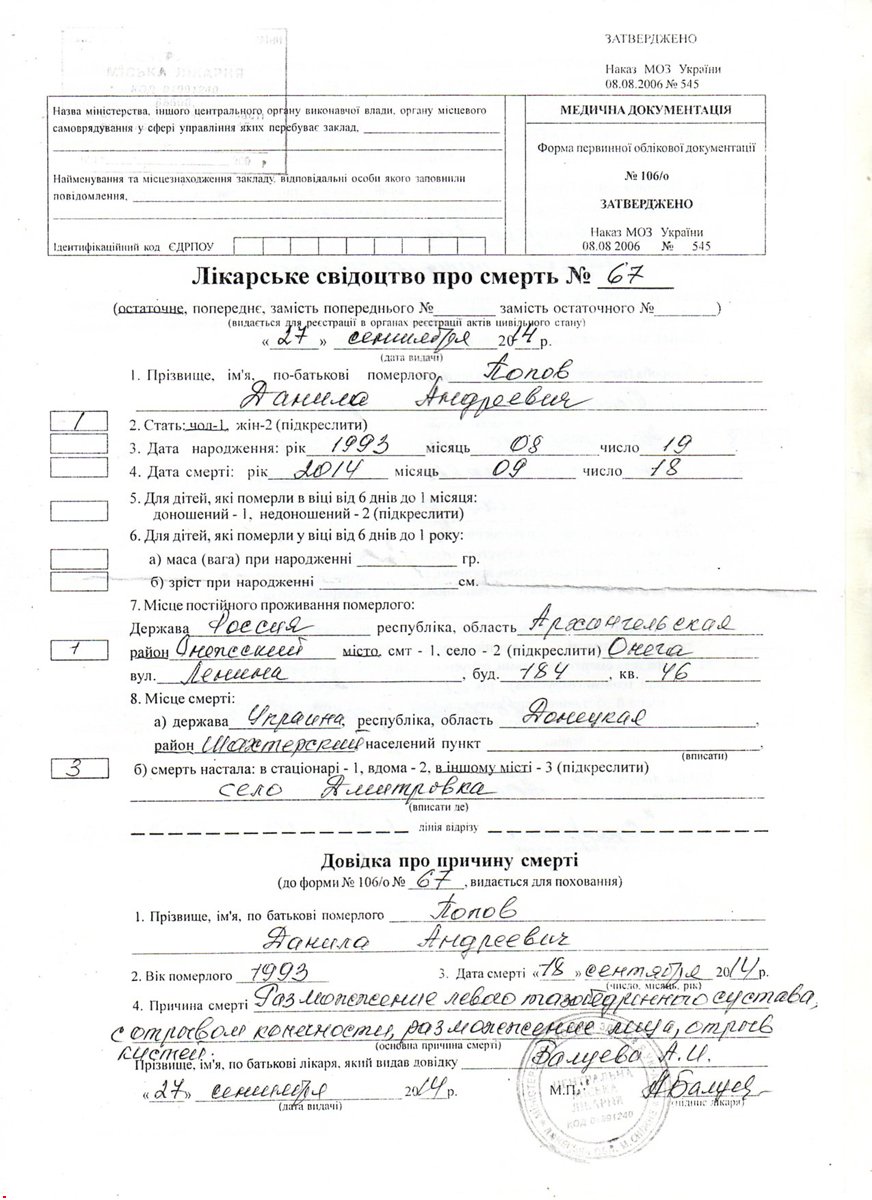 ЗАТВЕРДЖЕНО
Наказ МОЗ України
08.08.2006 № 545
Назва міністерства, іншого центрального органу виконавчої влади, органу місцевого
самоврядування у сфері управління яких перебуває заклад,
Найменування та місцезнаходження закладу, відповідальні особи якого заповнили
повідомлення,
Ідентифікаційний код ЄДРПОУ
МЕДИЧНА ДОКУМЕНТАЦІЯ
Форма первинної облікової документації
№ 106/о
ЗАТВЕРДЖЕНО
Наказ МОЗ України
08.08 2006 № 545
Лікарське свідоцтво про смерть № 67
(остаточне, попереднє, замість попереднього № замість остаточного № )
(видається для реєстрації в органах реєстрації актів цивільного стану)
« 27 » сентября 2014 р.
(дата видачі)
1. Прізвище, ім'я, по-батькові померлого Попов
Данила Андреевич
1 2. Стать: чол-1, жін-2 (підкреслити)
3. Дата народження: рік 1993 місяць 08 число 19
4. Дата смерті: рік 2014 місяць 09 число 18
5. Для дітей, які померли в віці від 6 днів до 1 місяця:
доношений - 1, недоношений - 2 (підкреслити)
6. Для дітей, які померли у віці від 6 днів до 1 року:
а) маса (вага) при народженні гр.
б) зріст при народженні см.
7. Місце постійного проживання померлого:
Держава Россия республіка, область Архангельская
1 район Онежский місто, смт - 1, село - 2 (підкреслити) Онега
вул. Ленина, буд. 184, кв. 46
8. Місце смерті:
а) держава Украина, республіка, область Донецкая,
район Шахтерский населений пункт .
(вписати)
3 б) смерть настала: в стаціонарі - 1, вдома - 2, в іншому місті - 3 (підкреслити)
село Дмитровка
(вписати де)
лінія відрізу
Довідка про причину смерті
(до форми № 106/о № 67, видається для поховання)
1. Прізвище, ім'я, по батькові померлого Попов
Данила Андреевич
2. Вік померлого 1993 3. Дата смерті «18» сентября 2014 р.
(число, місяць, рік)
4. Причина смерті Размозжение левого тазобедренного сустава,
с отрывом конечности, размозжение лица, отрыв
(основна причина смерті)
кистей.
Прізвище, ім'я, по батькові лікаря, який видав довідку Валуева А.И.
«27» сентября 2014 р. М.П.
(дата видачі) (підпис лікаря)